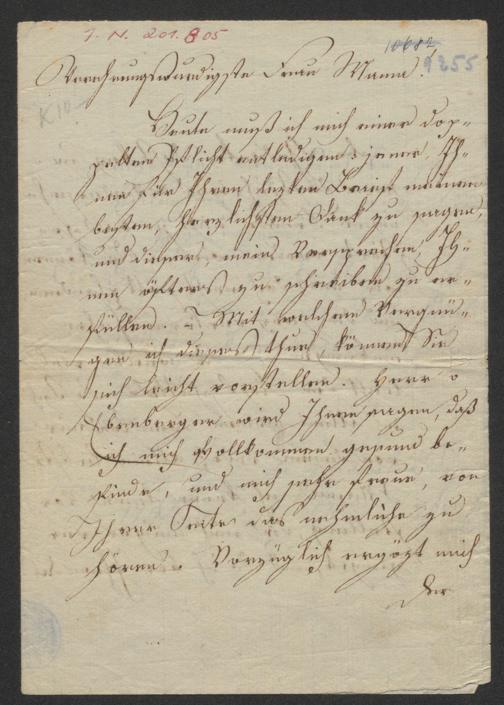 J. N. 201.805
10682
9255
K10
Verehrungswürdigste Frau Mama!
Heute muß ich mich einer dop-
pelten Pflicht entledigen: jener, Ih-
nen für Ihren lezten Brief meinen
besten, herzlichsten Dank zu sagen,
und dieser, mein Versprechen, Ih-
nen öfters zu schreiben zu er-
füllen. – Mit welchem Vergnü-
gen ich dieses thue, können Sie
sich leicht vorstellen. Herr v
Ebenberger wird Ihnen sagen, daß
ich mich vollkommen gesund be-
finde, und mich sehr freue, von
Ihrer Seite das nehmliche zu
hören. Vorzüglich ergözt mich
der